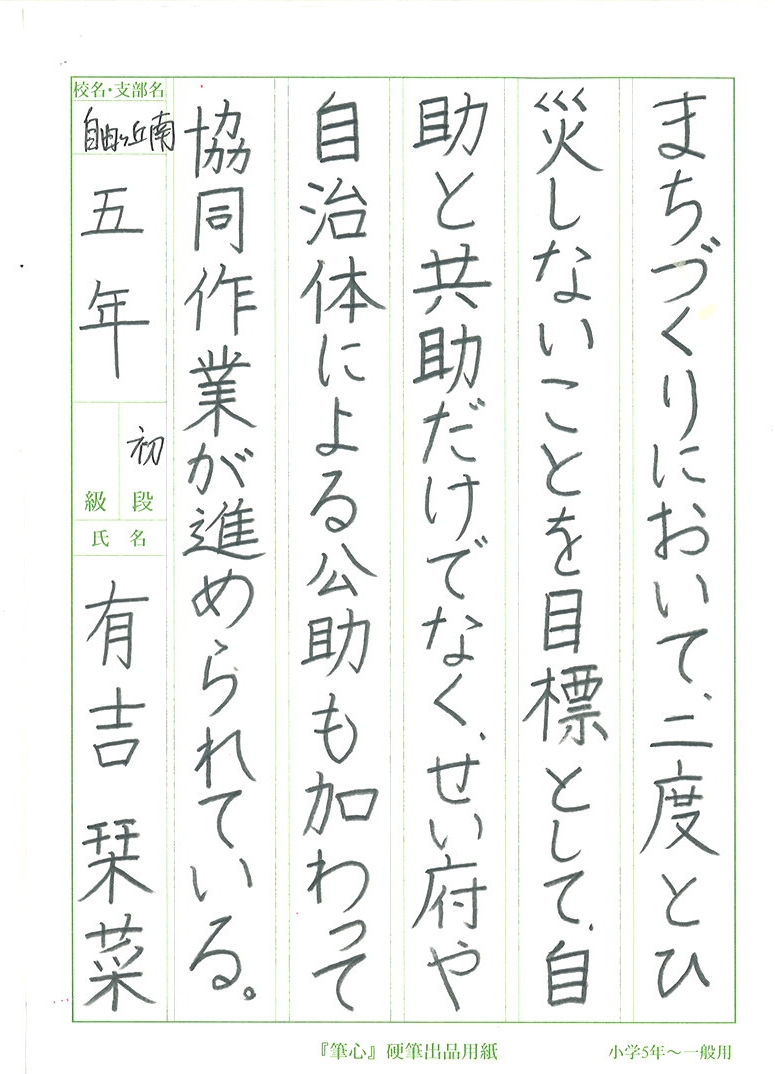 まちづくりにおいて、二度とひ
災しないことを目標として、自
助と共助だけでなく、せい府や
自治体による公助も加わって
協同作業が進められている。
校名・支部名
自由ヶ丘南
五年
初
級 段
氏 名
有吉 栞菜
『筆心』硬筆出品用紙
小学5年～一般用